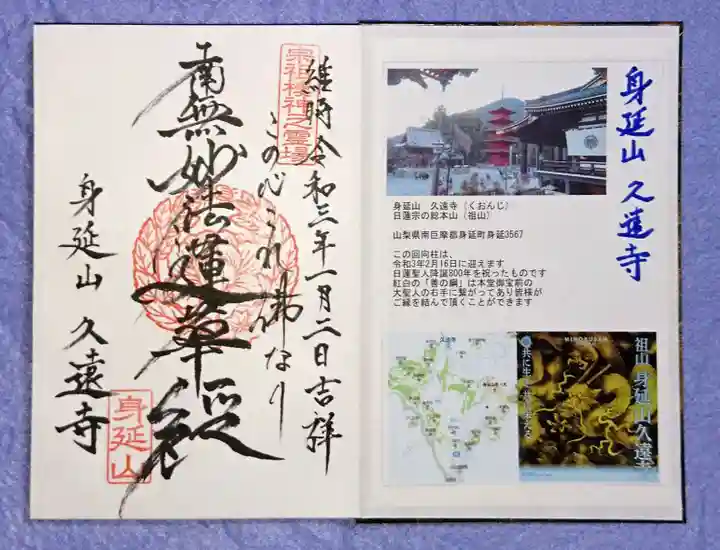 宗祖棲神之霊場
維時令和三年一月二日吉祥
この心これ佛なり
南無妙法蓮華経
身延山 久遠寺
身延山
身延山 久遠寺
身延山 久遠寺（くおんじ）
日蓮宗の総本山（祖山）
山梨県南巨摩郡身延町身延3567
この回向柱は、
令和3年2月16日に迎えます
日蓮聖人降誕800年を祝ったものです
紅白の「善の綱」は本堂御宝前の
大聖人の右手に繋がってあり皆様が
ご縁を結んで頂くことができます
久遠寺
MINOBUSAN
祖山 身延山久遠寺